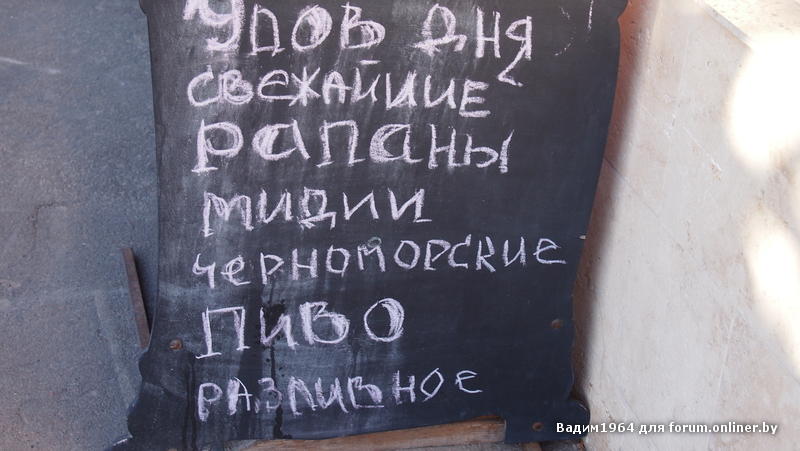 Улов дня
свежайшие
рапаны
мидии
черноморские
пиво
разливное
Вадим1964 для forum.onliner.by